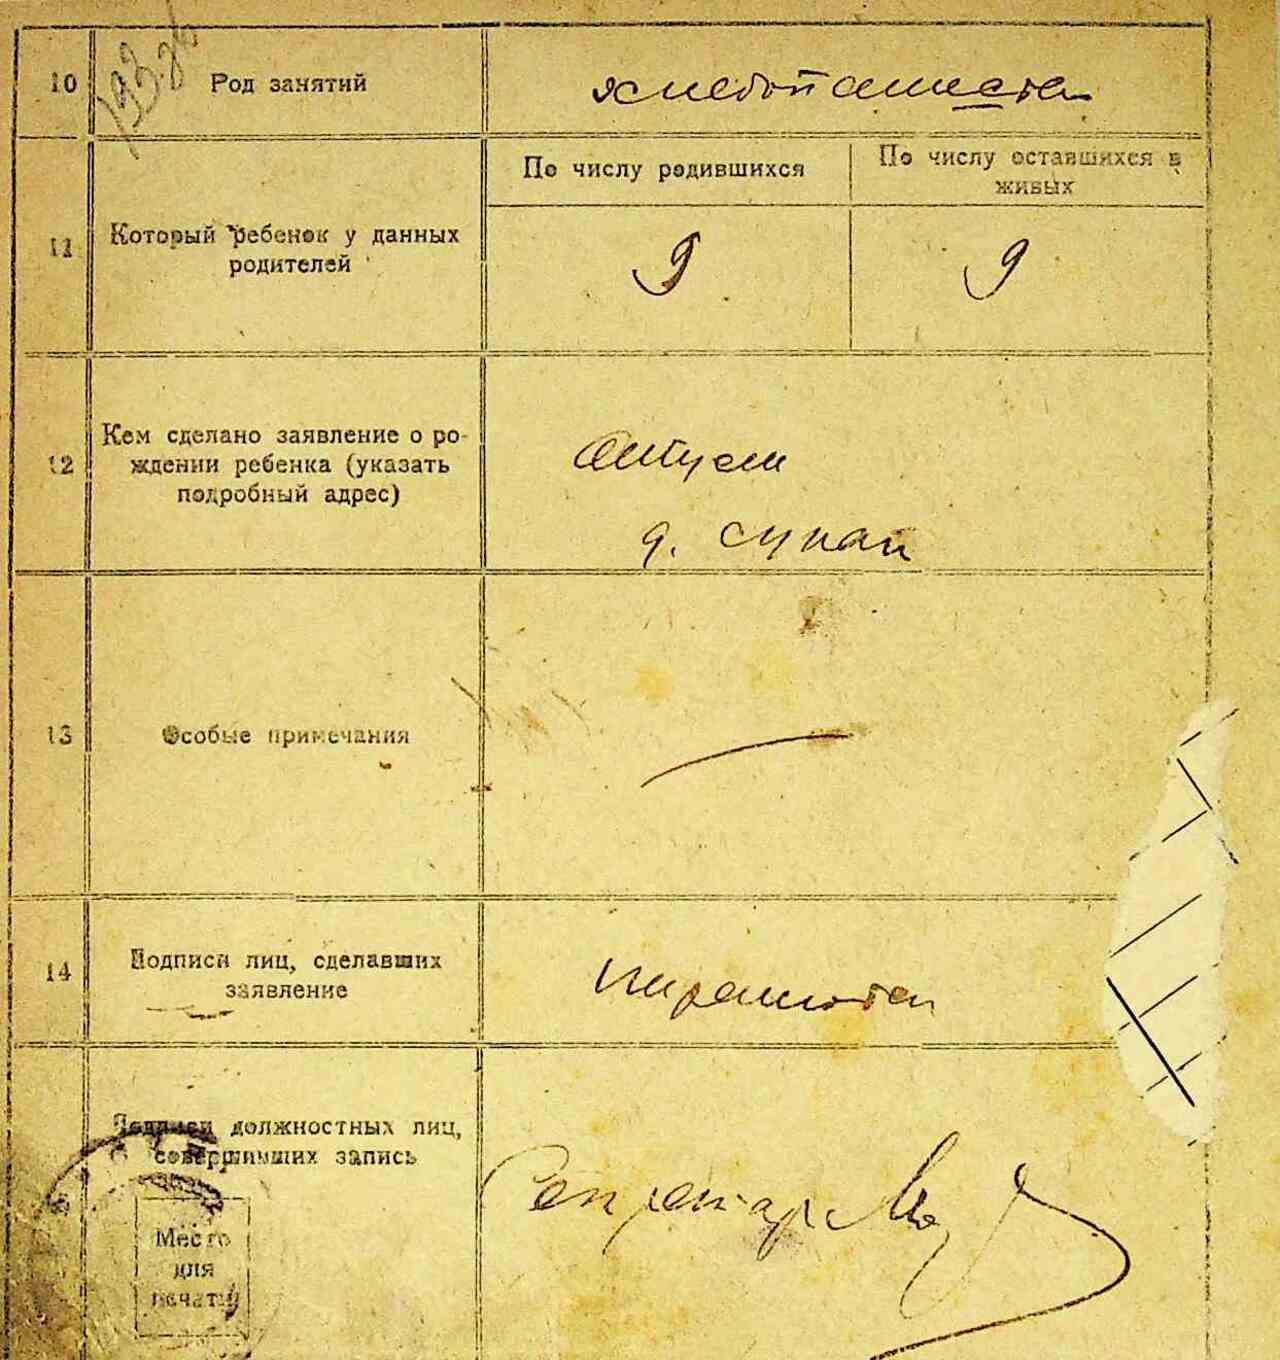 10
Род занятий
хлебопашество
11
Который ребенок у данных
родителей
По числу родившихся
По числу оставшихся в
живых
9
9
12
Кем сделано заявление о ро-
ждении ребенка (указать
подробный адрес)
отцем
д.
13
Особые примечания
14
Подписи лиц, сделавших
заявление
Подписи должностных лиц,
совершивших запись
Место
для
печати
Секретарь